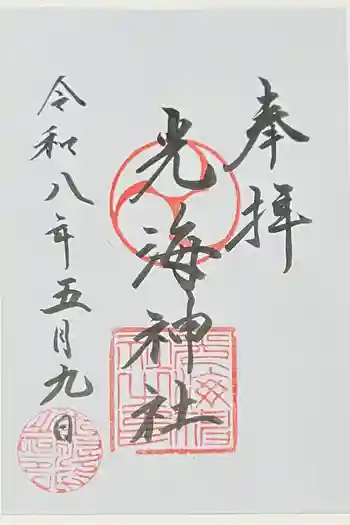 奉拝
光海神社
令和八年五月九日